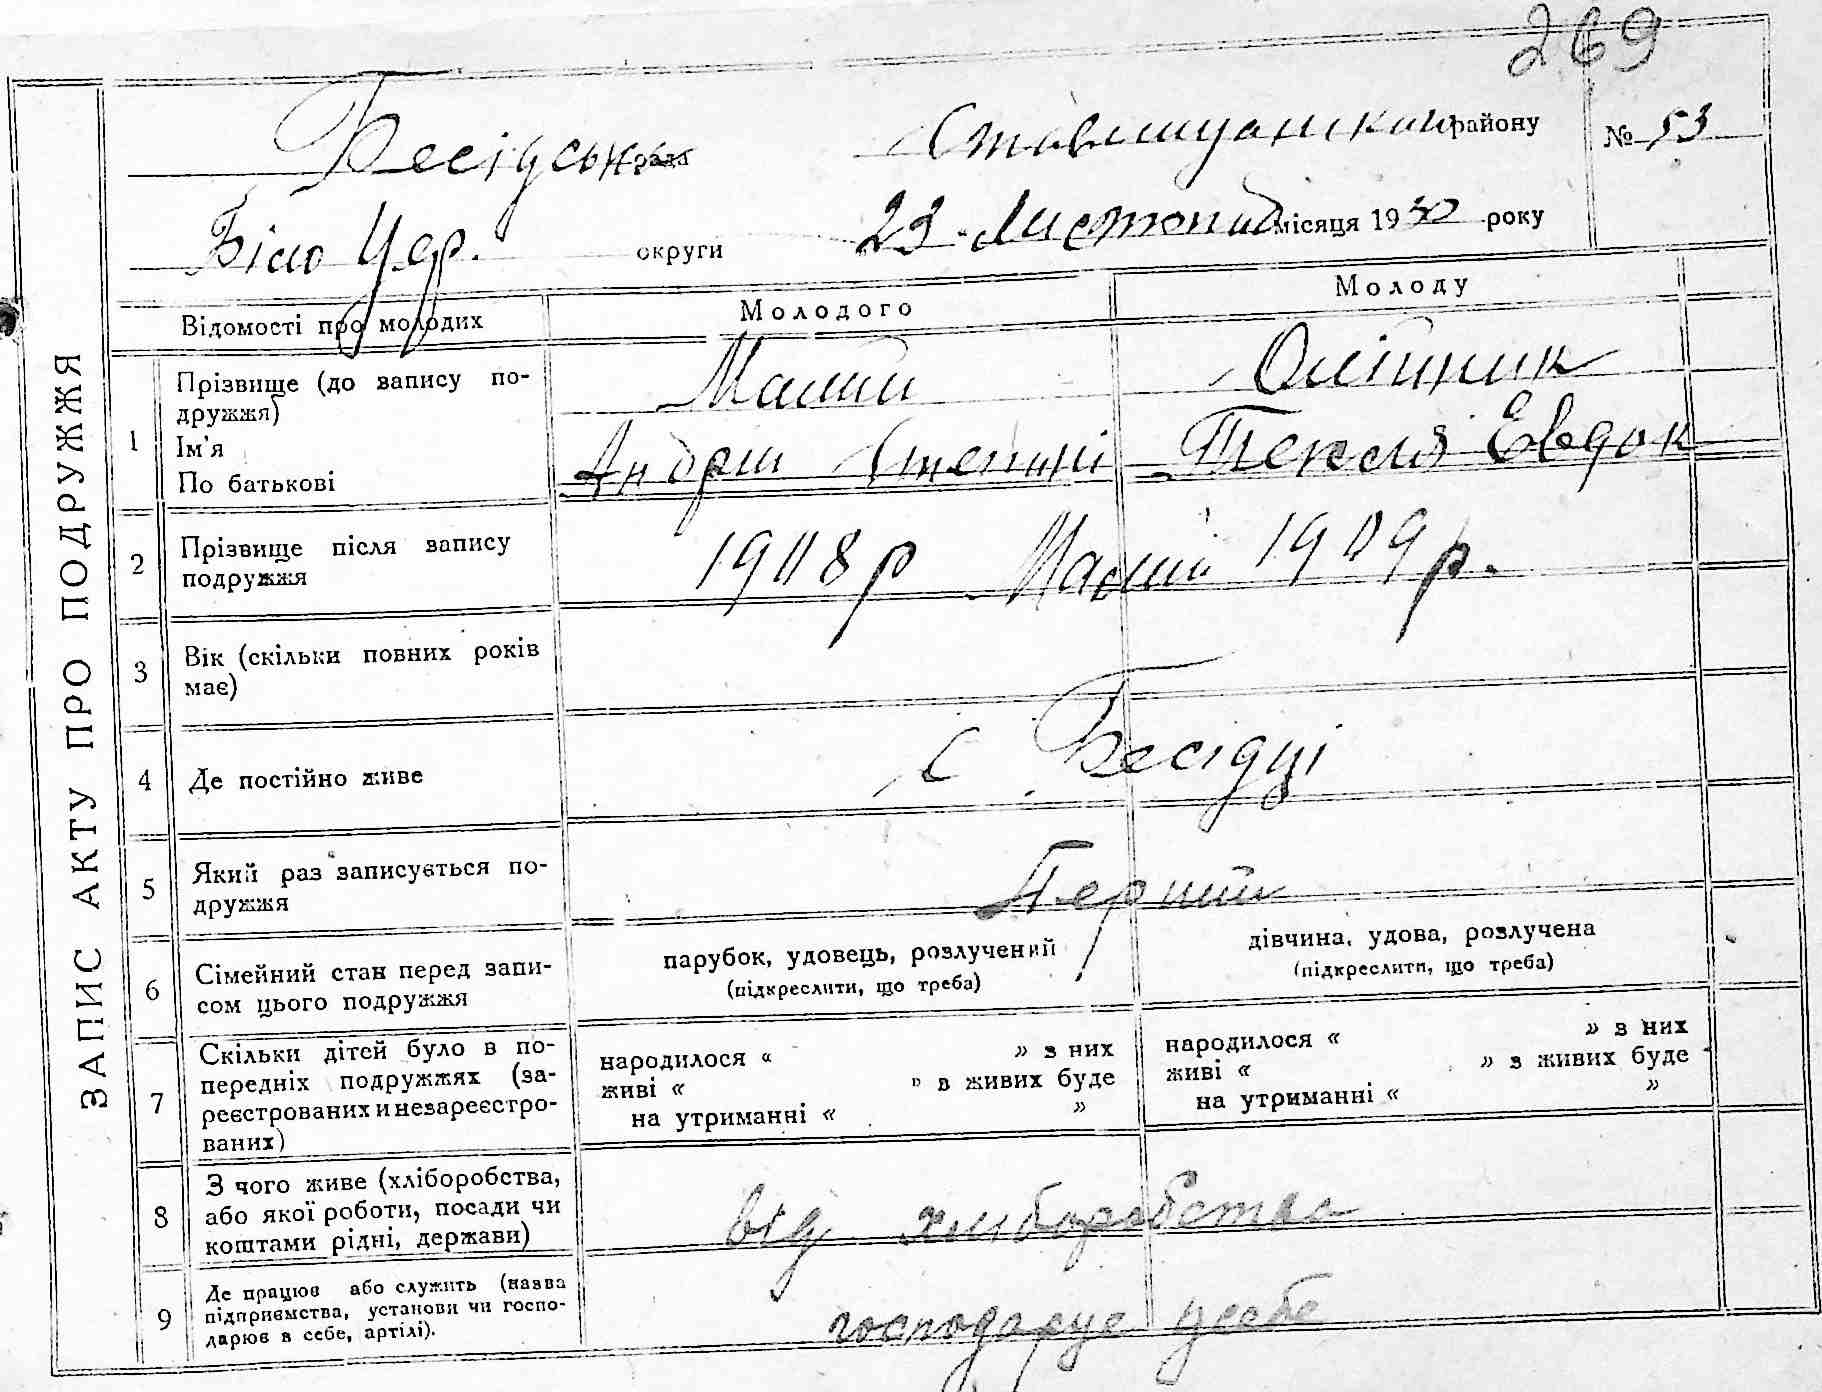 269
Бесідська рада Ставищанськ району № 53
Біло Цер. округи 23 Листопад місяця 1930 року
ЗАПИС АКТУ ПРО ПОДРУЖЖЯ
Відомості про молодих Молодого Молоду
1 Прізвище (до запису по-
дружжя) Малий Олійник
Ім'я
По батькові Андрій Степані Текля Евдок
2 Прізвище після запису
подружжя 1908 р Малий 1909 р.
3 Вік (скільки повних років
має)
4 Де постійно живе с Бесідці
5 Який раз записується по-
дружжя Перший
6 Сімейний стан перед запи-
сом цього подружжя
парубок, удовець, розлучений
(підкреслити, що треба)
дівчина, удова, розлучена
(підкреслити, що треба)
7 Скільки дітей було в по-
передніх подружжях (за-
реєстрованих и незареєстро-
ваних)
народилося « » з них
живі « » в живих буде
на утриманні « »
народилося « » з них
живі « » з живих буде
на утриманні « »
8 З чого живе (хліборобства,
або якої роботи, посади чи
коштами рідні, держави)
від хліборобства
9 Де працює або служить (назва
підприємства, установи чи госпо-
дарює в себе, артілі).
господарує усебе